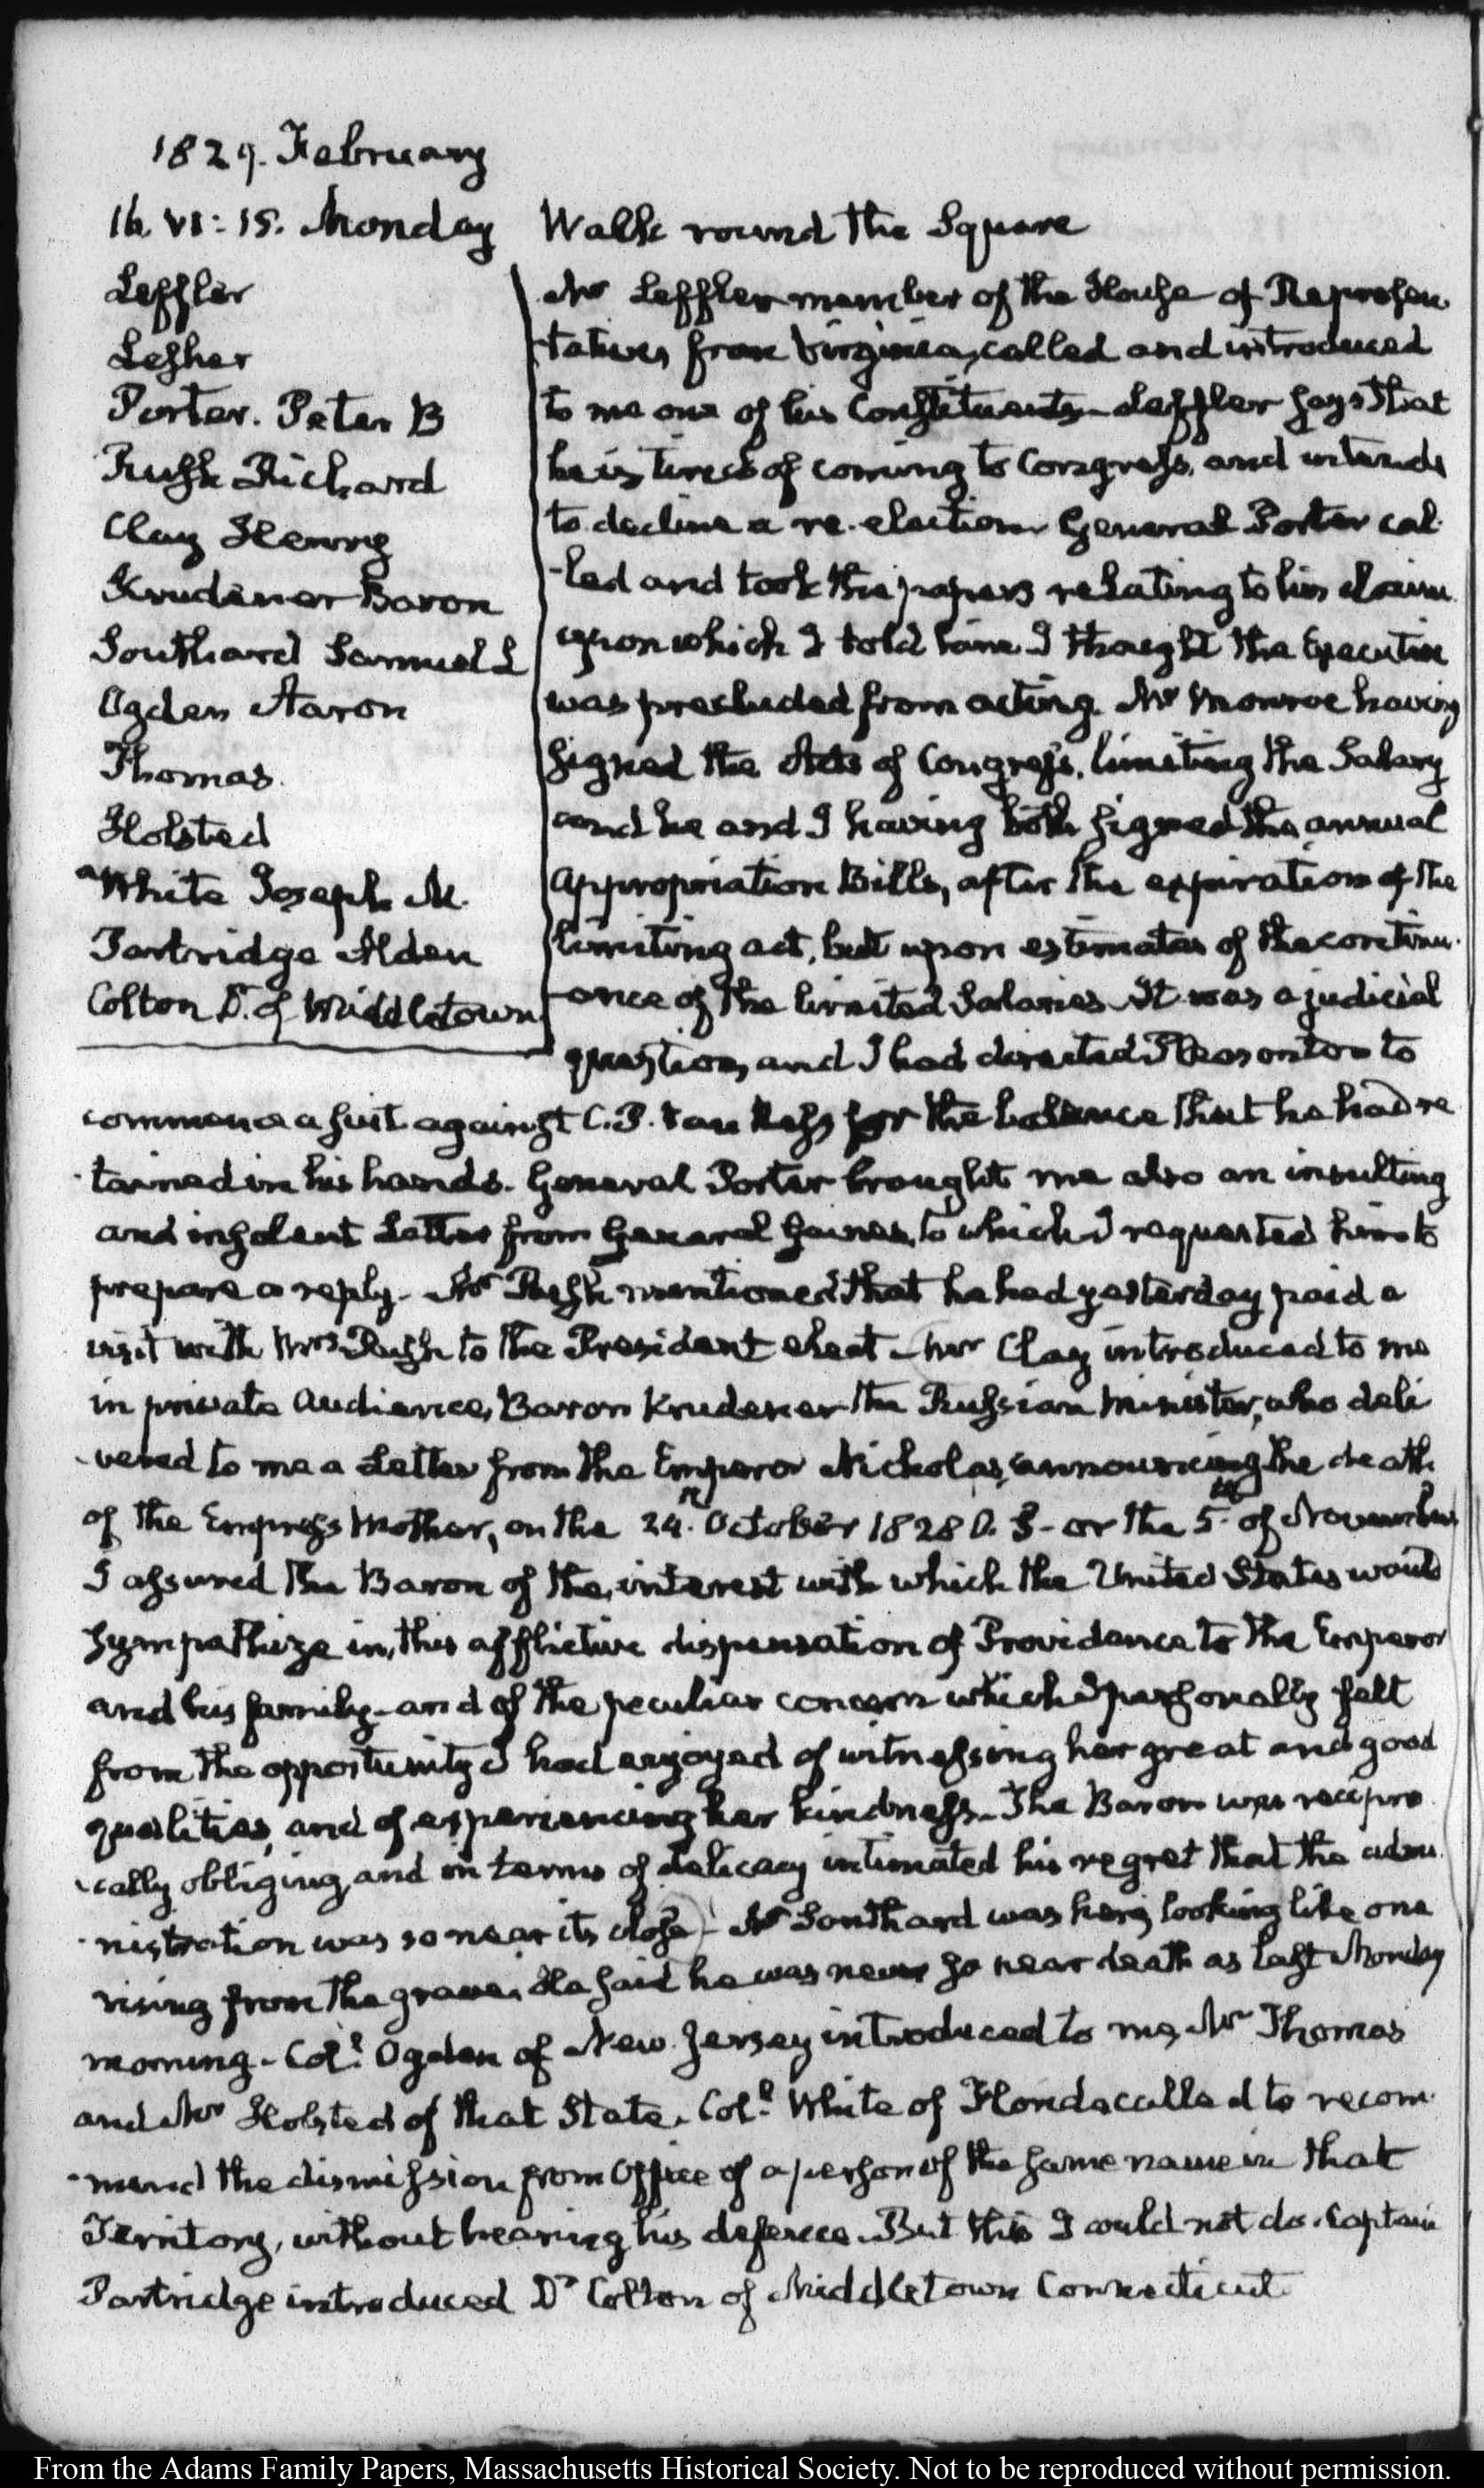 1829. February
16. VI: 15. Monday
Walk round the Square
Leffler
Lesher
Porter. Peter B
Rush Richard
Clay Henry
Krudener Baron
Southard Samuel L
Ogden Aaron
Thomas.
Holsted
White Joseph M.
Partridge Alden
Colton Dr. of Middletown
Mr Leffler member of the House of Represen
tatives from Virginia, called and introduced
to me one of his Constituents— Leffler says that
he is tired of coming to Congress, and intends
to decline a re-election. General Porter cal-
-led and took the papers relating to his claim
upon which I told him I thought the Executive
was precluded from acting. Mr Monroe having
signed the Acts of Congress, limiting the Salary
and he and I having both signed the annual
Appropriation Bills, after the expiration of the
limiting act, but upon estimates of the continu-
-ance of the limited Salaries. It was a judicial
question, and I had directed Pleasonton to
commence a suit against C. P. Van Ness for the balance that he had re
-tained in his hands. General Porter brought me also an insulting
and insolent Letter from General Gaines, to which I requested him to
prepare a reply— Mr Rush mentioned that he had yesterday paid a
visit with Mrs Rush to the President elect— Mr Clay introduced to me
in private Audience, Baron Krudener the Russian Minister, who deli
-vered to me a Letter from the Emperor Nicholas, announcing the death
of the Empress Mother, on the 24th. October 1828 O. S— or the 5th. of November
I assured the Baron of the interest with which the United States would
sympathize in this afflictive dispensation of Providence to the Emperor
and his family— and of the peculiar concern which I personally felt
from the opportunity I had enjoyed of witnessing her great and good
qualities, and of experiencing her kindness— The Baron was recipro
-cally obliging, and in terms of delicacy intimated his regret that the admi
-nistration was so near its close)— Mr Southard was here, looking like one
rising from the grave. He said he was never so near death as last Monday
morning— Coll. Ogden of New Jersey introduced to me, Mr Thomas
and Mr Holsted of that State. Coll. White of Florida called to recom
-mend the dismission from Office of a person of the same name in that
Territory, without hearing his defence. But this I could not do. Captain
Partridge introduced Dr Colton of Middletown Connecticut
From the Adams Family Papers, Massachusetts Historical Society. Not to be reproduced without permission.